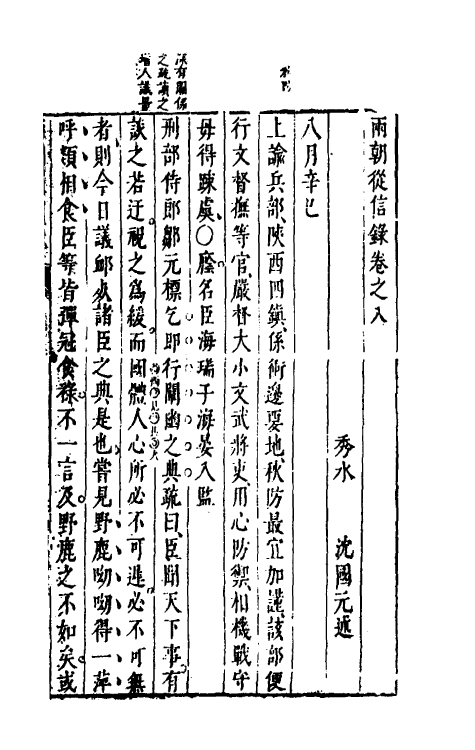 兩朝從信錄卷之八
秀水 沈國元述
八月辛巳
上諭兵部陝西四鎮係衝邊要地秋防最宜加謹該部便
行文督撫等官嚴督大小文武將吏用心防禦相機戰守
毋得踈虞○廕名臣海瑞子海晏入監
刑部侍郎鄒元標乞即行闡幽之典疏曰臣聞天下事有
談之若迂視之爲緩而國體人心所必不可遲必不可無
者則今日議䘏諸臣之典是也嘗見野鹿呦呦得一苹
呼類相食臣等皆彈冠食祿不一言及野鹿之不如矣或
深有關係
之疏讀之
增人議量
秋防